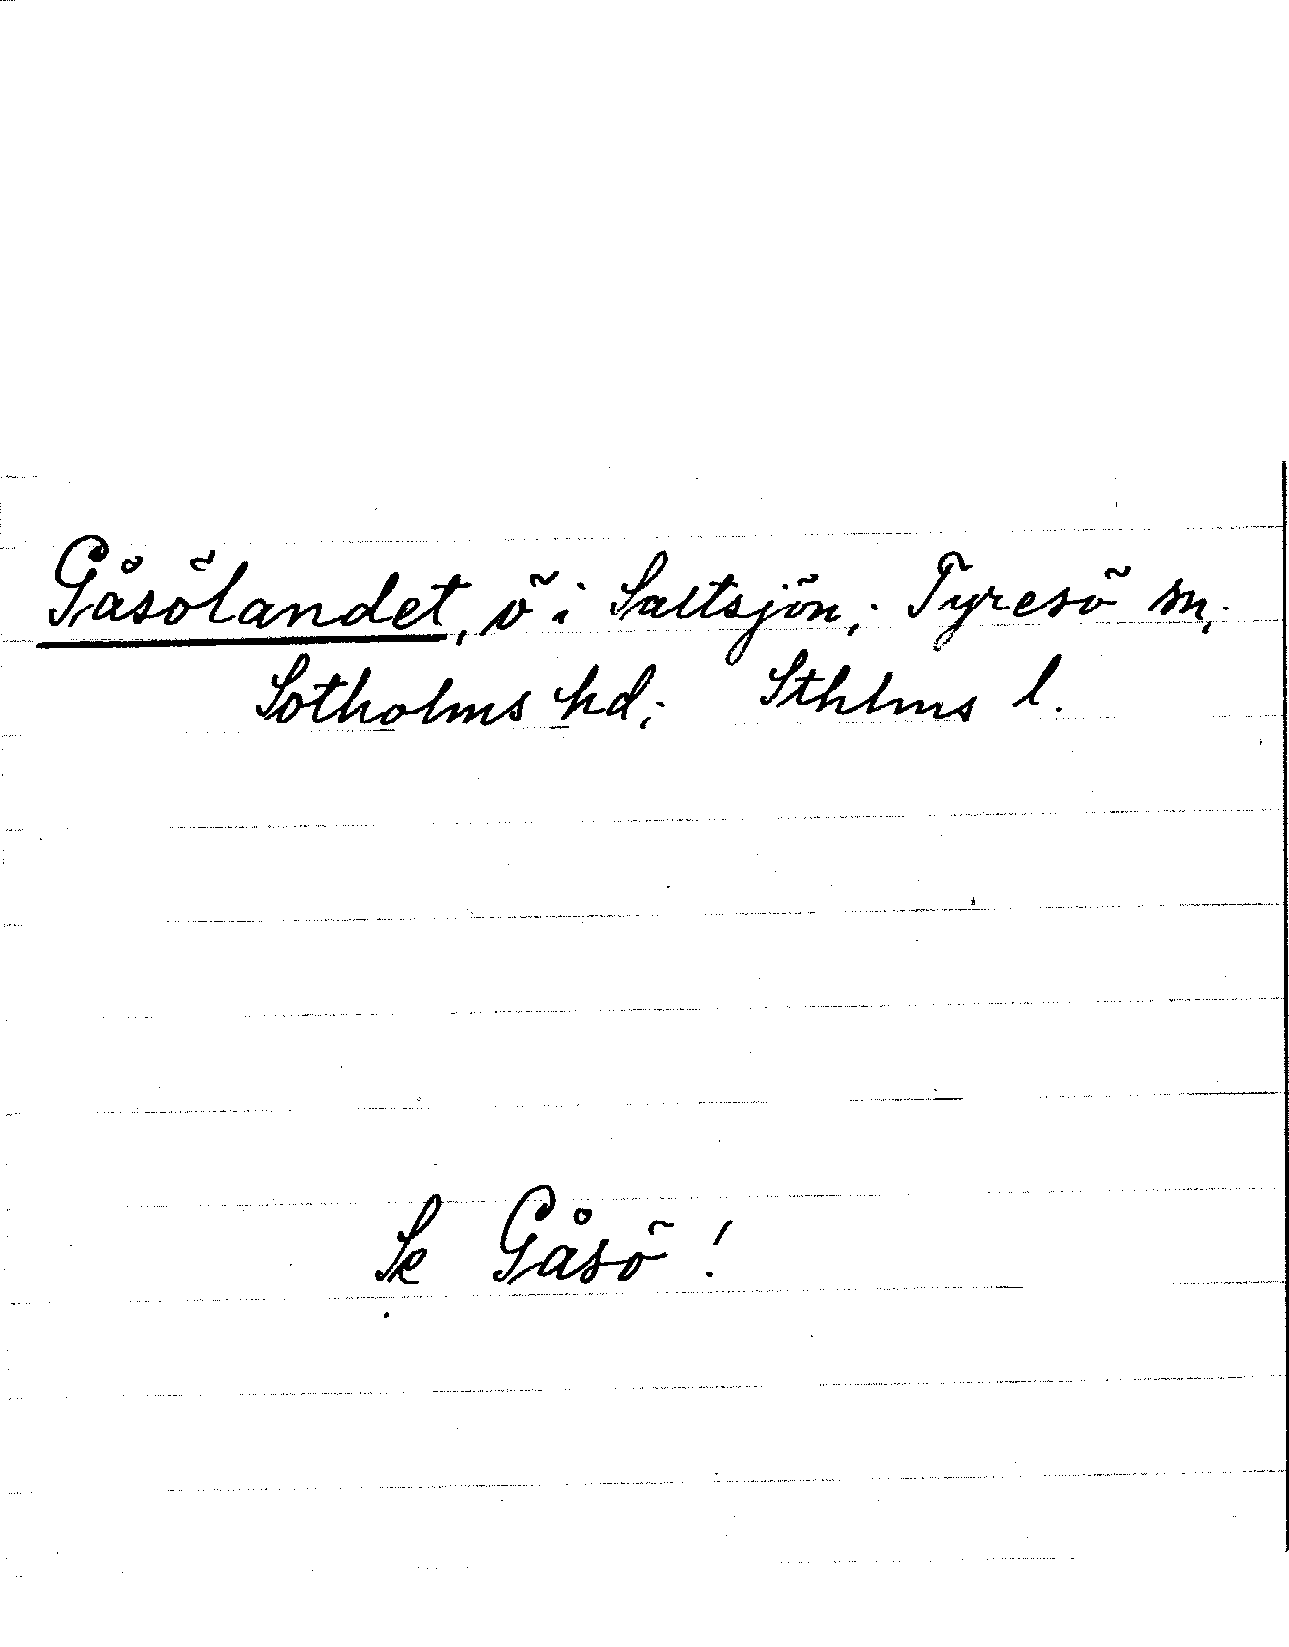 Gåsölandet, ö i Saltsjön; Tyresö sn,
Sotholms hd; Sthlms l.
Se Gåsö!